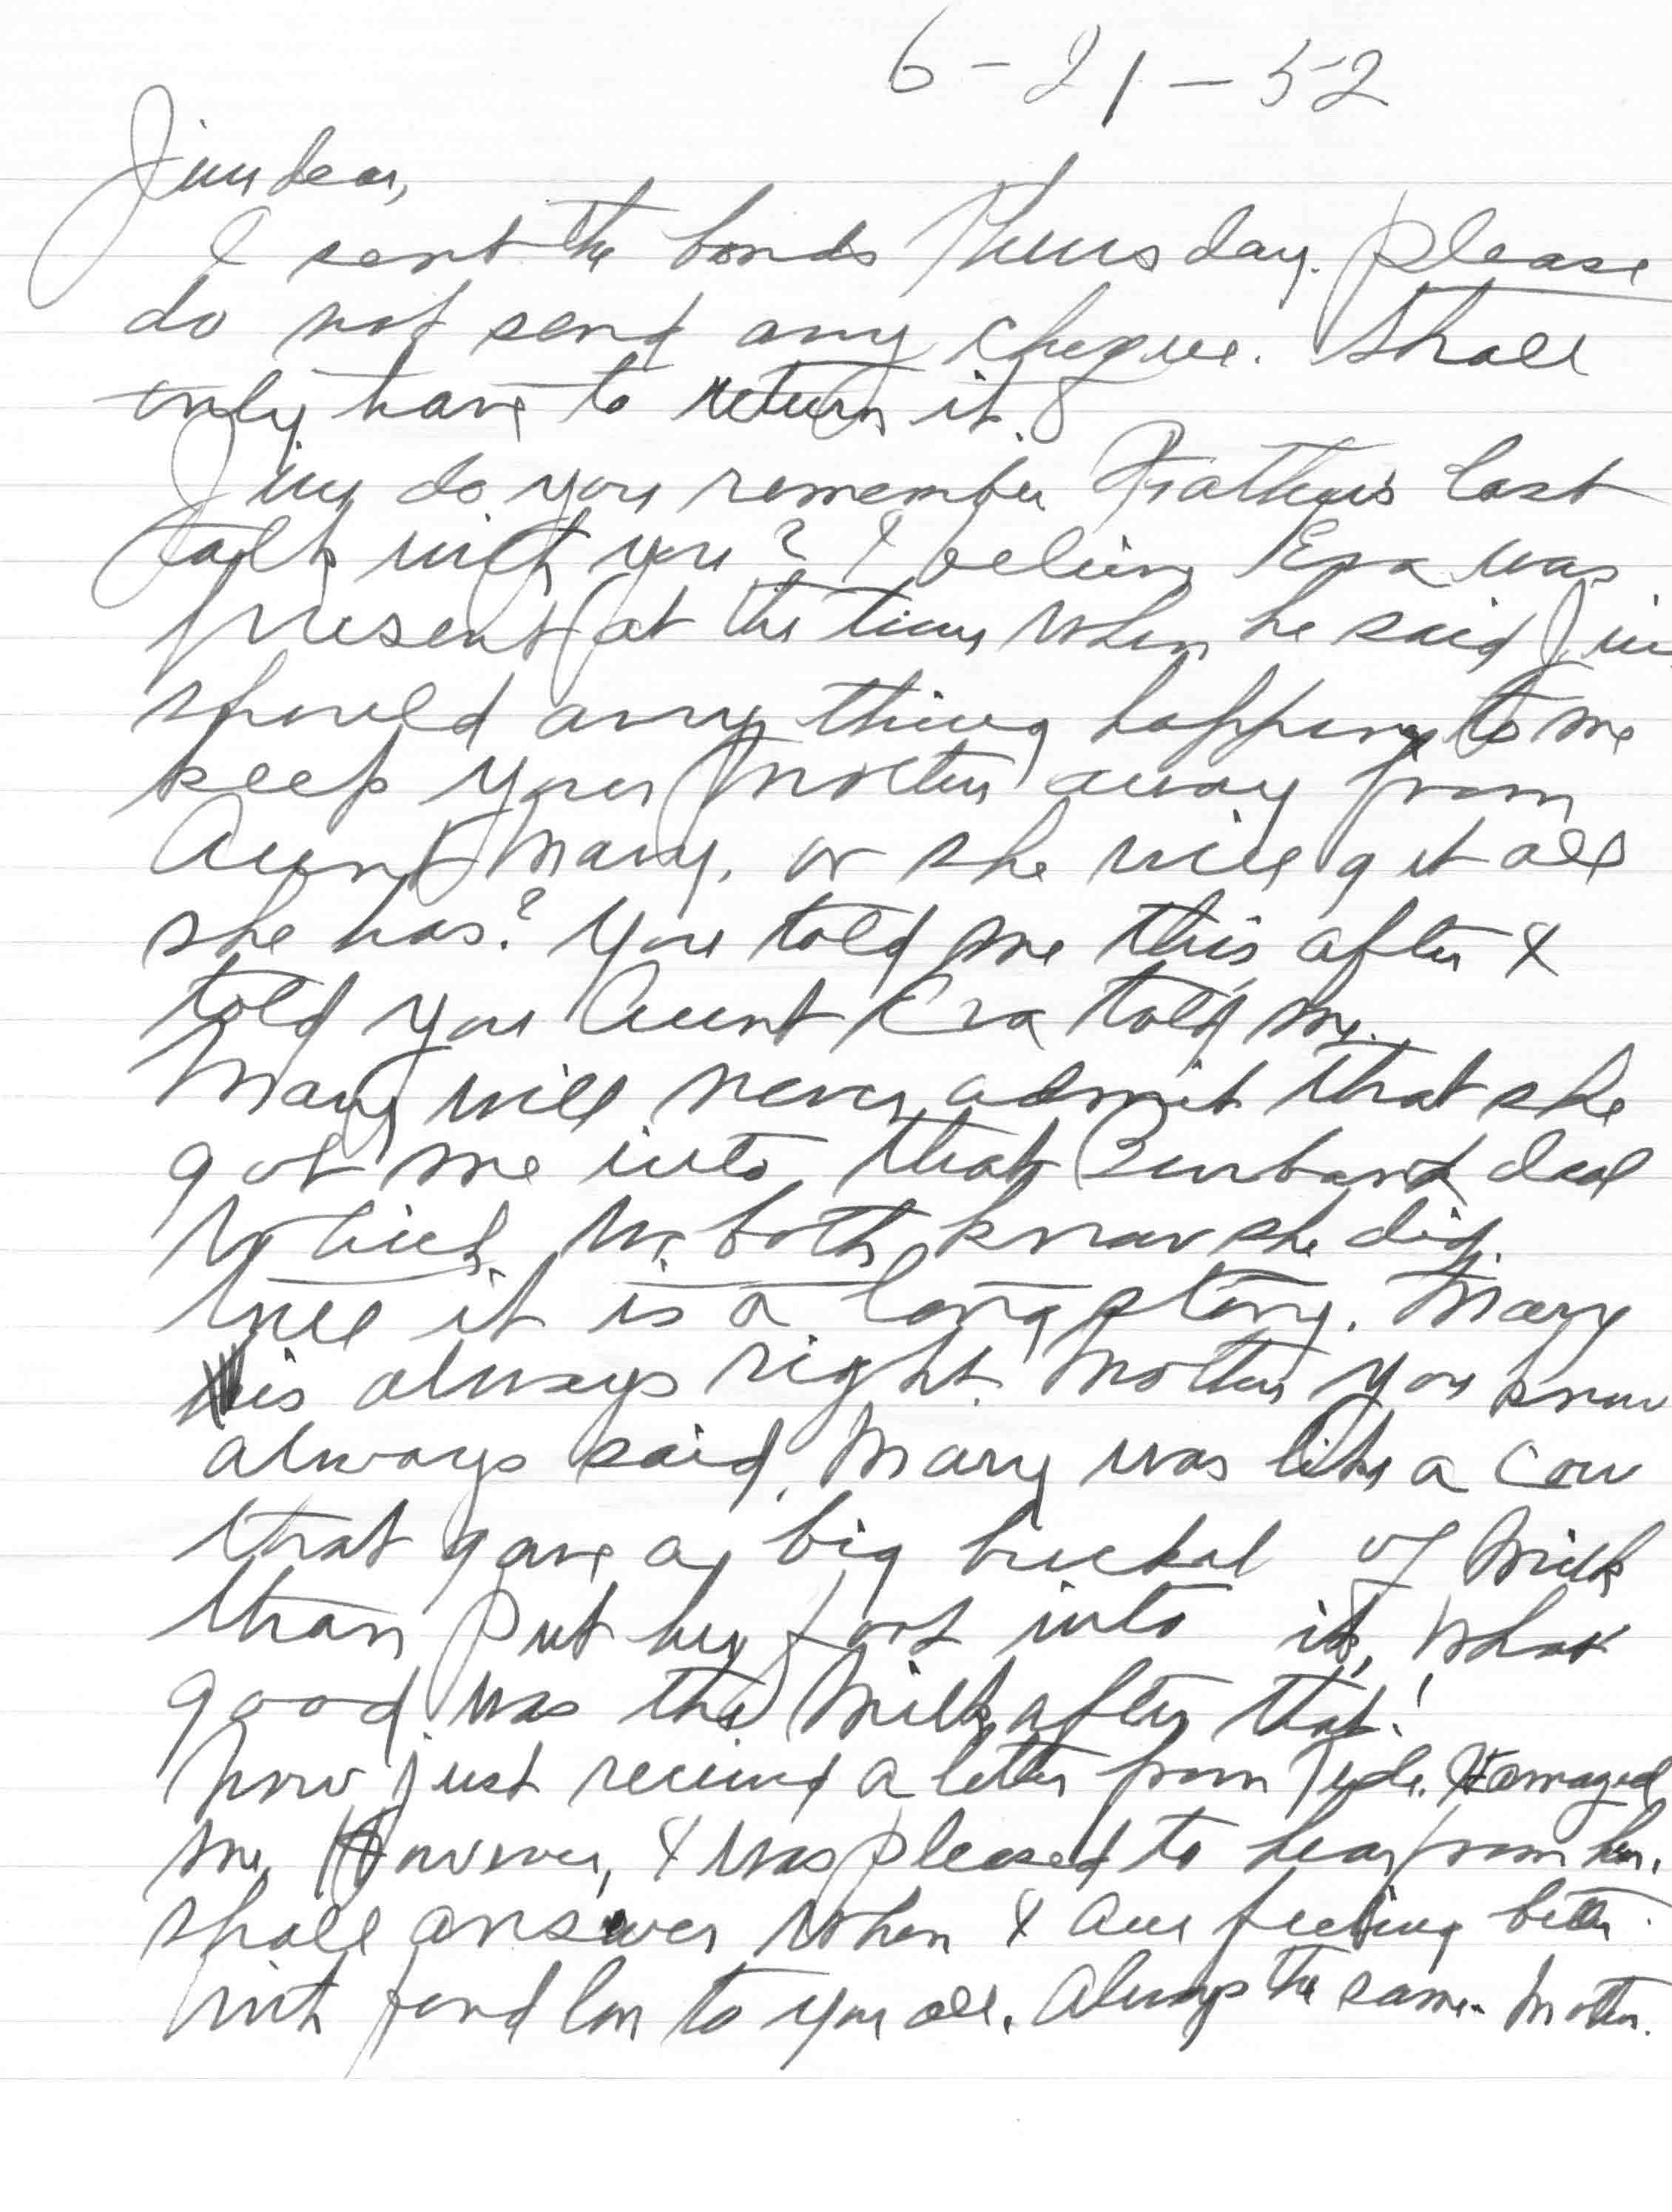 6-21-52
Jim dear,
I sent the bonds Thursday. Please
do not send any cheque. Shall
only have to return it.
Jim do you remember Father's last
talk with you? I believe Eva was
present at the time when he said Jim
should any thing happen to me
keep your Mother away from
Aunt Mary, or she will get all
she has? You told me this after I
told you Aunt Eva told me.
Mary will never admit that she
got me into that Burbank deal
which we both know she did.
Well it is a long story. Mary
is always right. Mother you know
always said, Mary was like a cow
that gave a big buckal of Milk
than put her foot into it, what
good was the Milk after that!
Now just received a letter from
me, However, I was pleased to hear from her.
shall answer when I am feeling better.
With fond love to you all. Always the same - Mother.